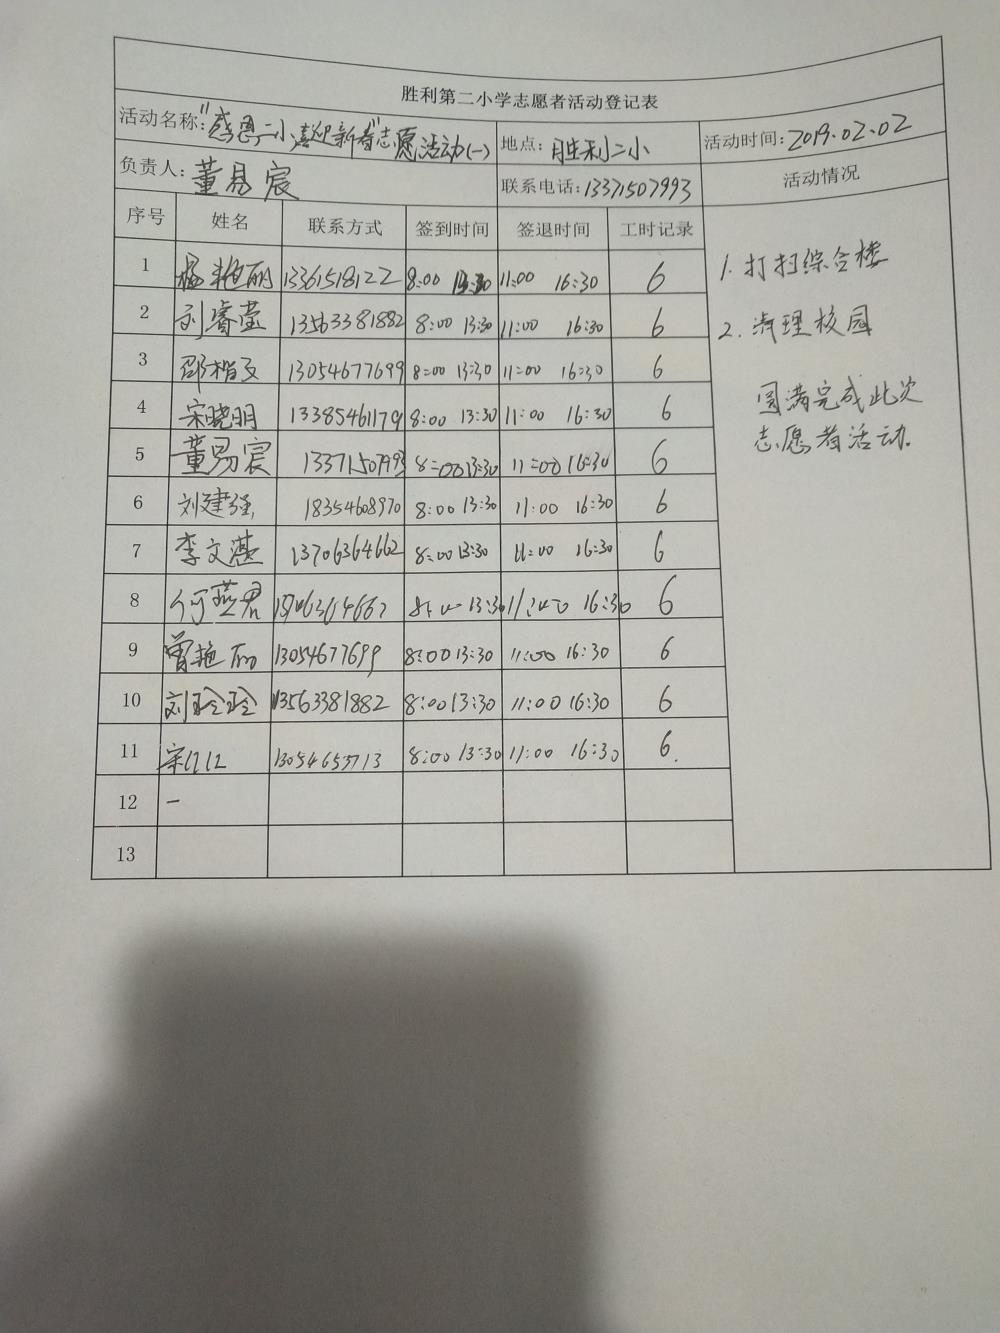 胜利第二小学志愿者活动登记表
活动名称："感恩二小,喜迎新春"志愿活动(一) 地点：胜利二小 活动时间：2019.02.02
负责人：董易宸 联系电话：13371507993 活动情况
序号 姓名 联系方式 签到时间 签退时间 工时记录
1 杨艳丽 13361518122 8:00 13:30 11:00 16:30 6
2 刘睿莹 13563381882 8:00 13:30 11:00 16:30 6
3 邵楷文 13054677699 8:00 13:30 11:00 16:30 6
4 宋晓明 13385461179 8:00 13:30 11:00 16:30 6
5 董易宸 13371507993 8:00 13:30 11:00 16:30 6
6 刘建强 18354608970 8:00 13:30 11:00 16:30 6
7 李文湛 13706364662 8:00 13:30 11:00 16:30 6
8 何燕君 8:00 13:30 11:00 16:30 6
9 曾艳丽 13054677699 8:00 13:30 11:00 16:30 6
10 刘玲玲 13563381882 8:00 13:30 11:00 16:30 6
11 13054653713 8:00 13:30 11:00 16:30 6.
12 一
13
1. 打扫综合楼
2. 清理校园
圆满完成此次
志愿者活动.